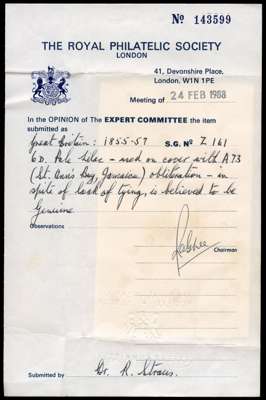 Nº 143599
THE ROYAL PHILATELIC SOCIETY
LONDON
41, Devonshire Place,
London, W1N 1PE
Meeting of 24 FEB 1988
In the OPINION of The EXPERT COMMITTEE the item
submitted as
Great Britain: 1855-57 S.G. Nº Z 161
6D. Pale lilac - used on cover with A73
(St. Ann's Bay, Jamaica) obliteration - in
spite of lack of tying, is believed to be
Genuine
Observations
Chairman
Submitted by Gr. R. Straus.